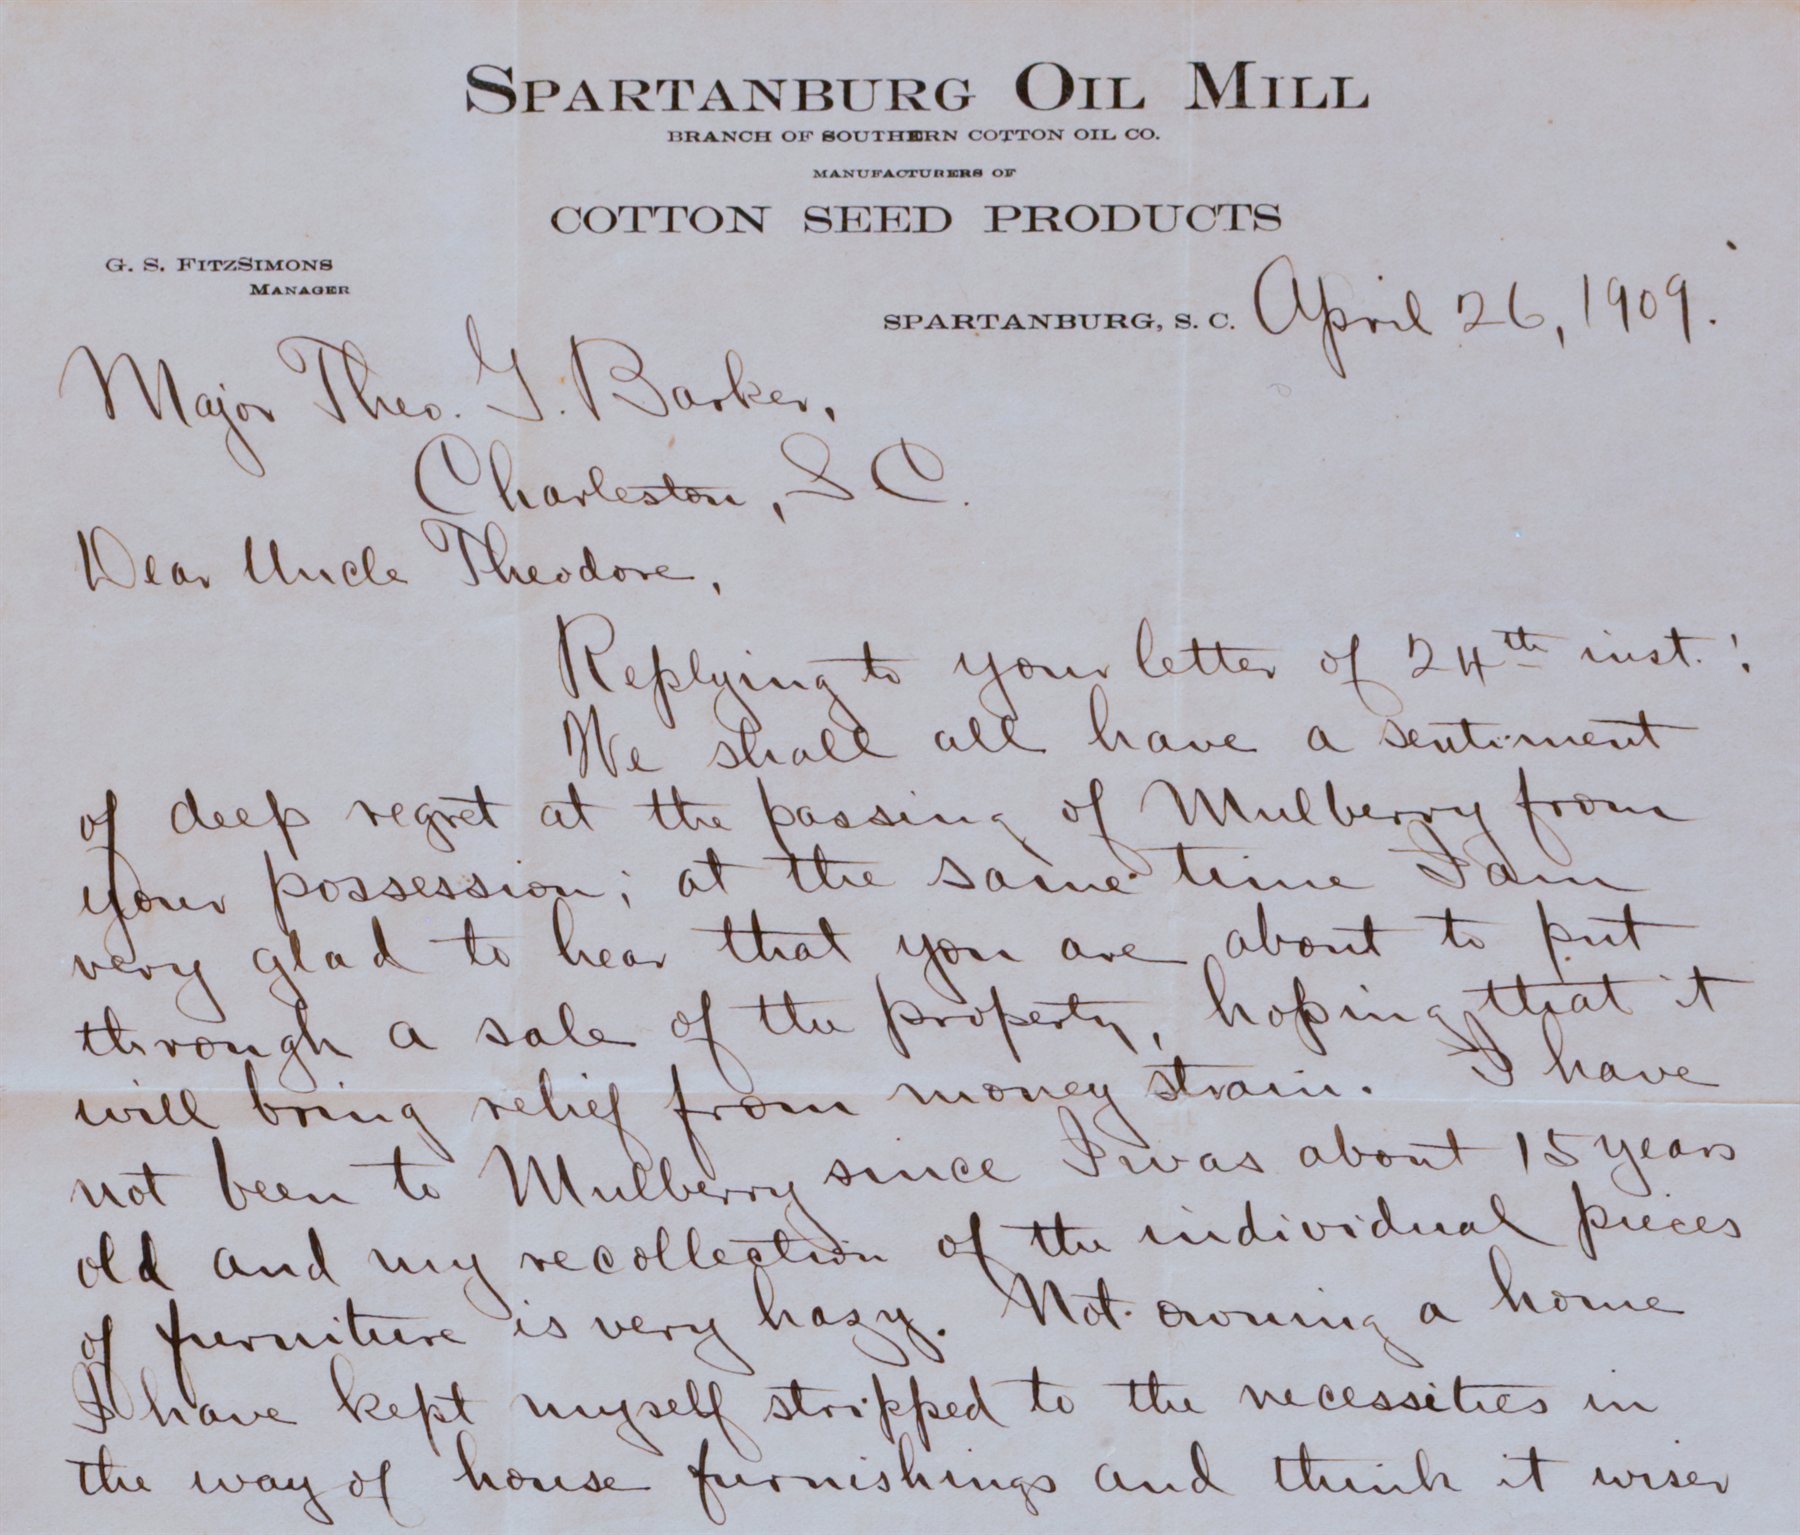 SPARTANBURG OIL MILL
BRANCH OF SOUTHERN COTTON OIL CO.
MANUFACTURERS OF
COTTON SEED PRODUCTS
G. S. FITZSIMONS
MANAGER
SPARTANBURG, S. C. April 26, 1909.
Major Theo. G. Barker,
Charleston, S C.
Dear Uncle Theodore,
Replying to your letter of 24th inst.:
We shall all have a sentiment
of deep regret at the passing of Mulberry from
your possession; at the same time I am
very glad to hear that you are about to put
through a sale of the property, hoping that it
will bring relief from money strain. I have
not been to Mulberry since I was about 15 years
old and my recollection of the individual pieces
of furniture is very hazy. Not owning a home
I have kept myself stripped to the necessities in
the way of house furnishings and think it wiser